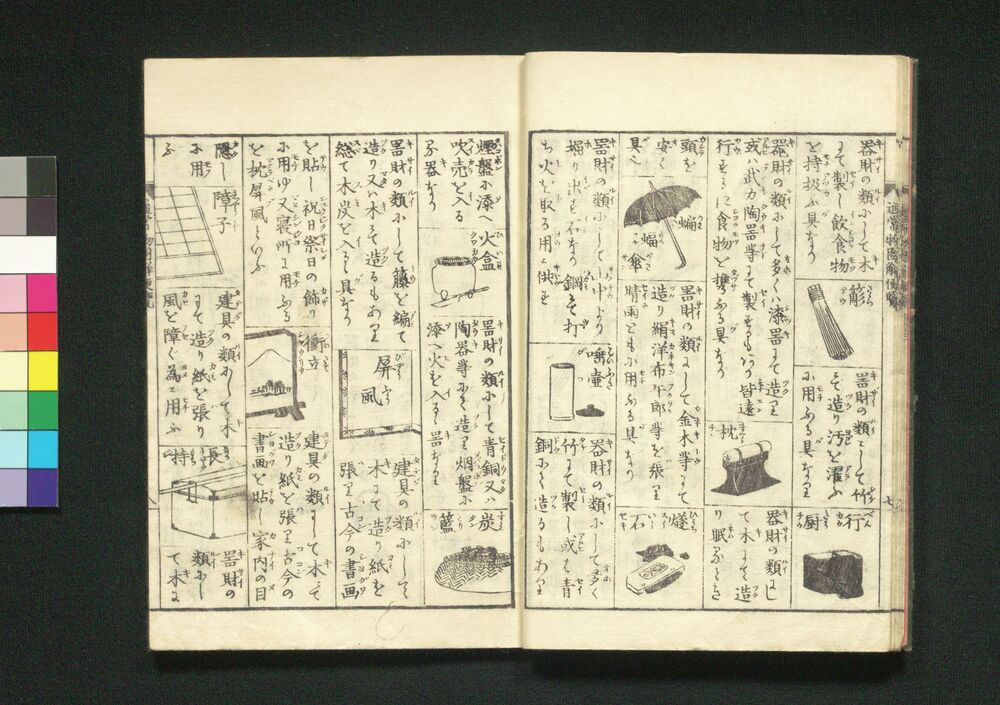 器財の類にして木
にて製し飲食物
を持扱ふ具なり
簓
器財の類にして竹
にて造り汚を濯ふ
に用ふる具なり
行厨
器財の類にして多くハ漆器にて造り
或ハ武力陶器等にて製するもあり皆遠
行するに食物を携ふる具なり
枕
器財の類にし
て木にて造
り眠るとき
頭を
安く
具へ
蝙蝠傘
器財の類にして金木等にて
造り絹洋布午郎等を張り
晴雨ともに用ふる具なり
燧石
器財の類にして山中より
掘り出す石なり鋼にて打
ち火を取る用に供す
唾壺
器財の類にして多く
竹にて製し或ハ青
銅にて造るもあり
煙盤に添へ
吹売を入る
る器なり
火盒
器財の類にして青銅又ハ
陶器等にて造り烟盤に
添へ火を入るる器なり
炭籃
器財の類にして籐を編て
造り又ハ木にて造るもあり
総て木炭を入るる具なり
屏風
建具の類にして
木にて造り紙を
張り古今の書画
を貼し祝日祭日の飾り
に用ゆ又寝所に用ふる
を枕屏風といふ
衝立
建具の類にして木にて
造り紙を張り古今の
書画を貼し家内の目
隠し
に用
ふ
障子
建具の類にして木
にて造り紙を張り
風を障ぐ為に用ふ
長持
器財の
類にし
て木に
七